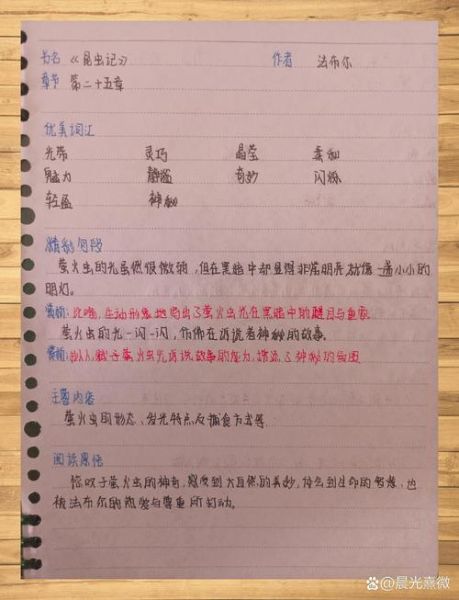 书名 《昆虫记》 作者 法布尔
章节 第二十五章
优美词汇
光带 灵巧 晶莹 柔和
魅力 静谧 奇妙 闪烁
轻盈 神秘
精彩句段
萤火虫的光虽然很微弱,但在黑暗中却显得非常明亮,就像一盏小小的
明灯。
赏析:比喻,生动形象地写出了萤火虫光在黑暗中的醒目与重要
萤火虫的光一闪一闪,仿佛在诉说着神秘的故事。
赏析:拟人,赋予萤火虫光诉说故事的能力,增添了神秘的氛围
主要内容
萤火虫的形态、发光特点及捕食方式等
阅读感悟
惊叹于萤火虫的神奇,感受到大自然的美妙,体会到生命的
也
被法布尔的热爱与尊重所打动。
晨光熹微